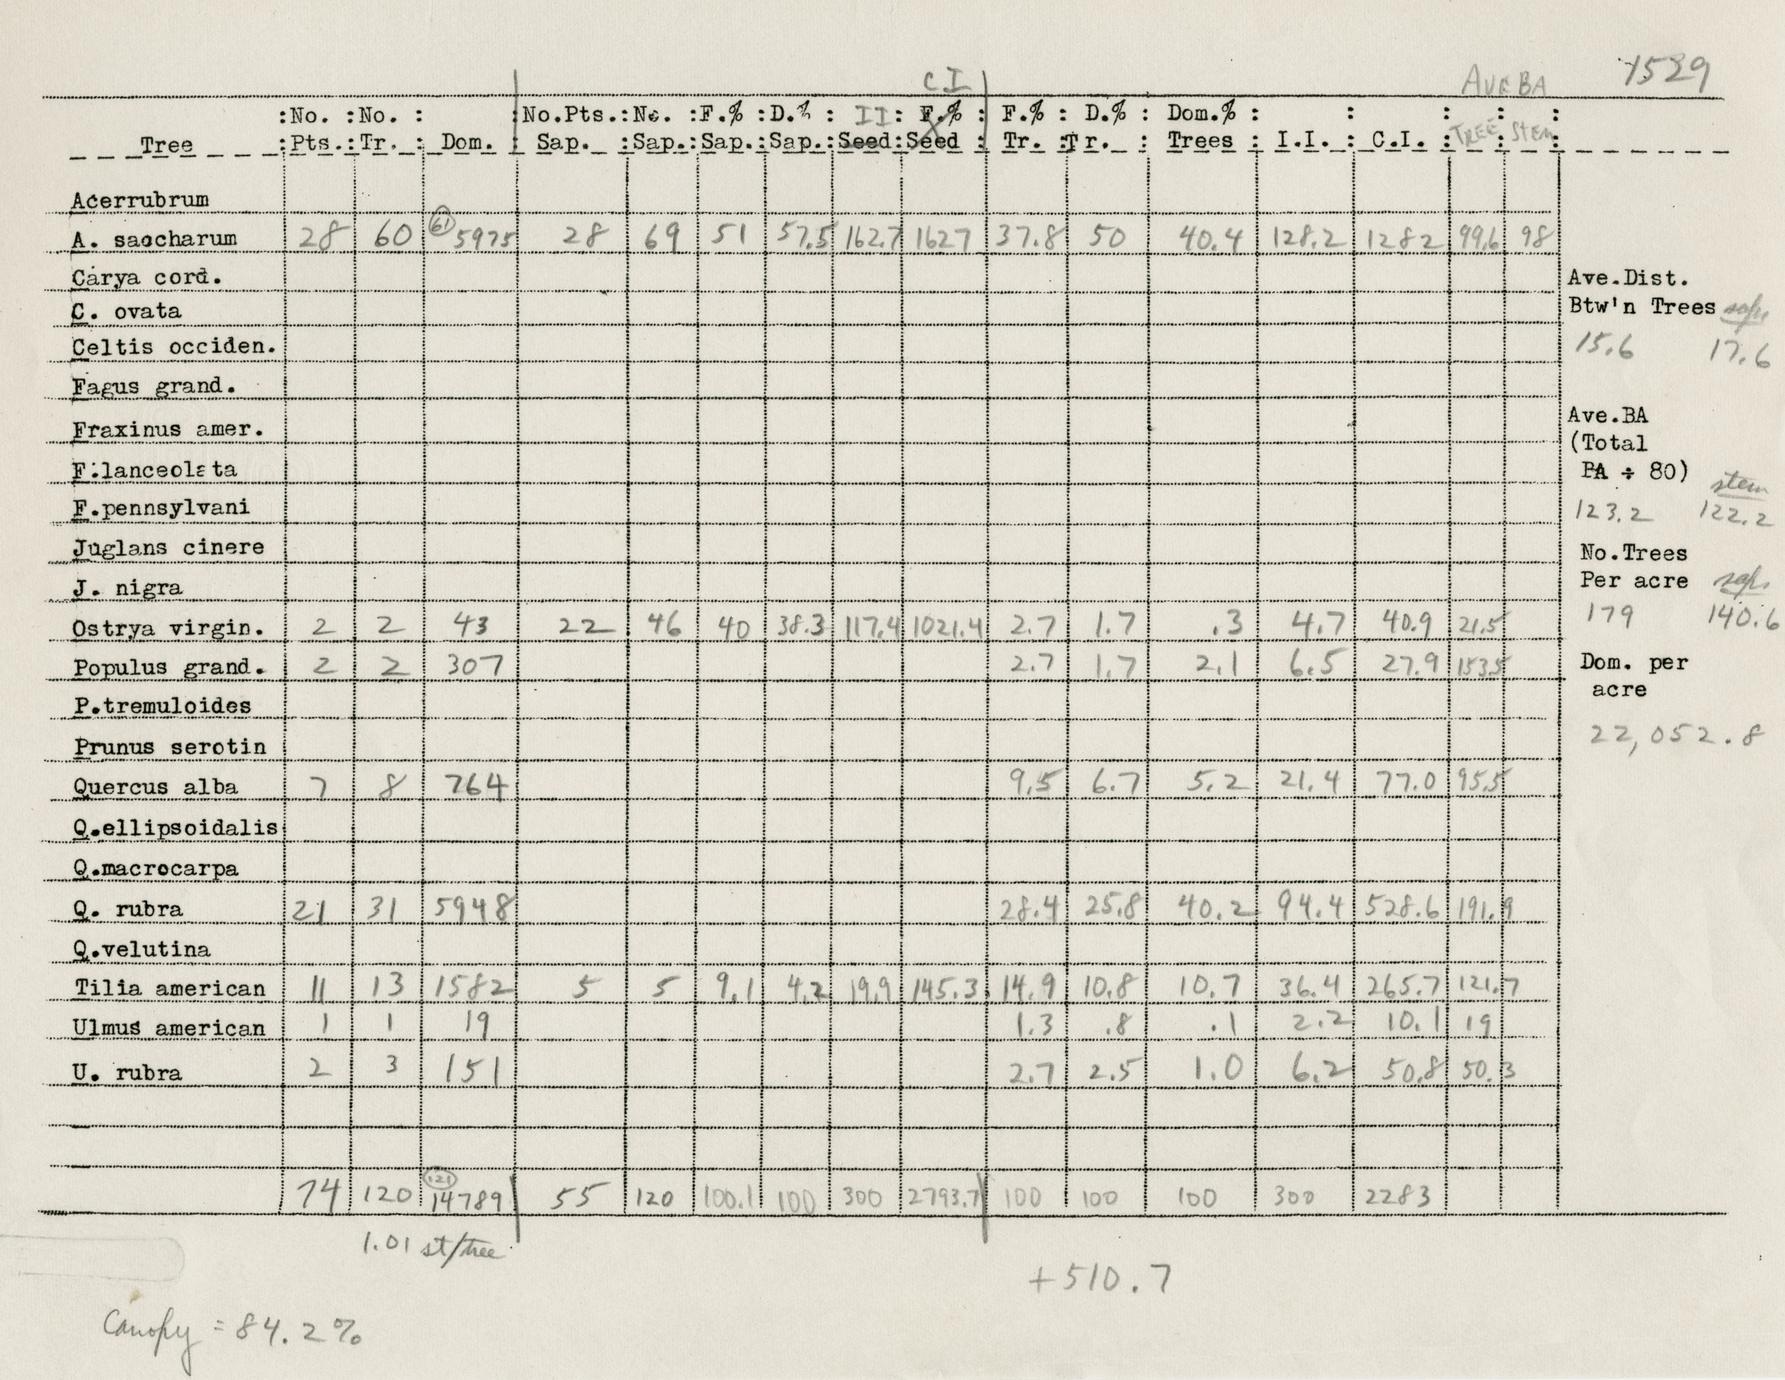 1529
CI
AVEBA
:No. :No. : :No.Pts.:No. :F.% :D.% : II: F.% : F.% : D.% : Dom.% : : : : :
Tree :Pts.:Tr. : Dom. : Sap. :Sap.:Sap.:Sap.:Seed:Seed : Tr. :Tr. : Trees : I.I. : C.I. : TREE STEM
Acerrubrum
A. saccharum 28 60 (61) 5975 28 69 51 57.5 162.7 1627 37.8 50 40.4 128.2 1282 99.6 98
Carya cord.
Ave.Dist.
C. ovata
Btw'n Trees saps
Celtis occiden.
15.6 17.6
Fagus grand.
Ave.BA
Fraxinus amer.
(Total
F.lanceolata
BA ÷ 80) stem
F.pennsylvani
123.2 122.2
Juglans cinere
No.Trees
J. nigra
Per acre saps
Ostrya virgin. 2 2 43 22 46 40 38.3 117.4 1021.4 2.7 1.7 .3 4.7 40.9 21.5
179 140.6
Populus grand. 2 2 307 2.7 1.7 2.1 6.5 27.9 153.5
Dom. per
acre
P.tremuloides
22,052.8
Prunus serotin
Quercus alba 7 8 764 9.5 6.7 5.2 21.4 77.0 95.5
Q.ellipsoidalis
Q.macrocarpa
Q. rubra 21 31 5948 28.4 25.8 40.2 94.4 528.6 191.9
Q.velutina
Tilia american 11 13 1582 5 5 9.1 4.2 19.9 145.3 14.9 10.8 10.7 36.4 265.7 121.7
Ulmus american 1 1 19 1.3 .8 .1 2.2 10.1 19
U. rubra 2 3 151 2.7 2.5 1.0 6.2 50.8 50.3
74 120 (121) 14789 55 120 100.1 100 300 2793.7 100 100 100 300 2283
1.01 st/tree
+510.7
Canopy = 84.2%